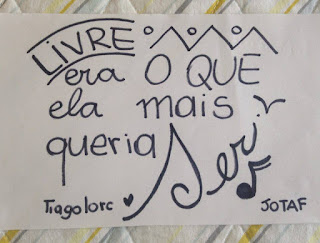 LIVRE
era O QUE
ela mais
queria Ser
Tiago Iorc JOTAF